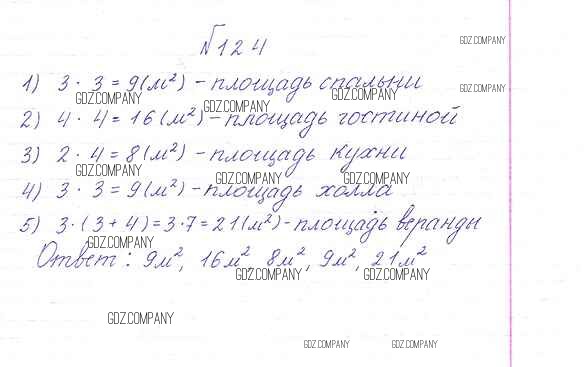 №124
GDZ.COMPANY
1) 3 · 3 = 9 (м²) – площадь спальни
GDZ.COMPANY GDZ.COMPANY GDZ.COMPANY GDZ.COMPANY
2) 4 · 4 = 16 (м²) – площадь гостиной
3) 2 · 4 = 8 (м²) – площадь кухни
GDZ.COMPANY GDZ.COMPANY GDZ.COMPANY
4) 3 · 3 = 9 (м²) – площадь холла
5) 3 · (3 + 4) = 3 · 7 = 21 (м²) – площадь веранды
GDZ.COMPANY
Ответ: 9м², 16м², 8м², 9м², 21м²
GDZ.COMPANY GDZ.COMPANY
GDZ.COMPANY
GDZ.COMPANY GDZ.COMPANY